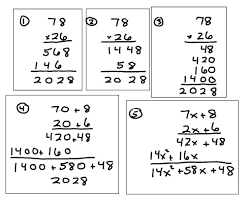 ①
78
×26
568
146
2028
②
78
×26
1448
58
2028
③
78
×26
48
420
160
1400
2028
④
70+8
20+6
420+48
1400+160
1400+580+48
2028
⑤
7x+8
2x+6
42x+48
14x²+16x
14x²+58x+48